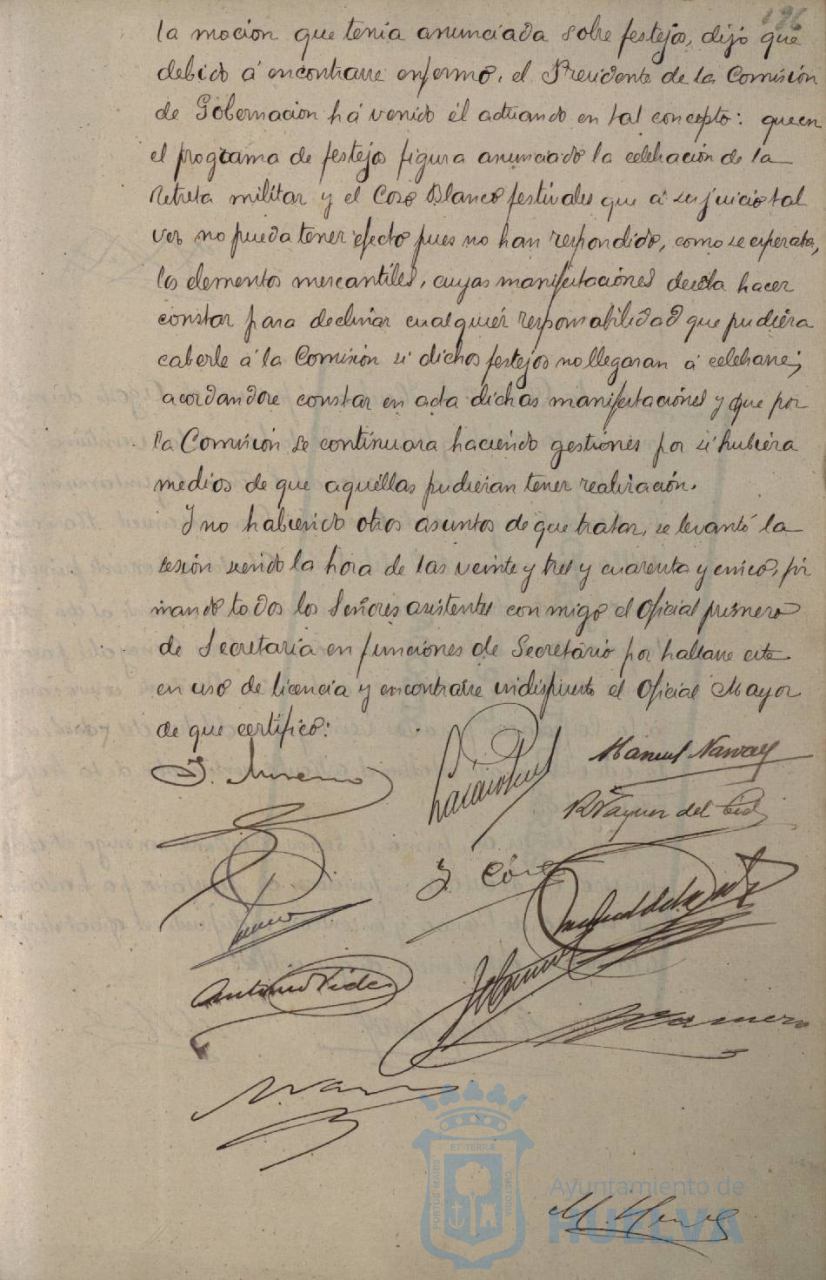 196
la mocion que tenia anunciada sobre festejos, dijo que
debido á encontrarse enfermo, el Presidente de la Comisión
de Gobernacion há venido él actuando en tal concepto: que en
el programa de festejos figura anunciado la celebración de la
retreta militar y el Coso Blanco festivales que á su juicio tal
vez no pueda tener efecto pues no han respondido, como se esperaba,
los elementos mercantiles, cuyas manifestaciónes desea hacer
constar para declinar cualquiér responsabilidad que pudiéra
caberle á la Comisión si dichos festejos no llegaran á celebrarse;
acordandose constar en acta dichas manifestaciónes y que por
la Comisión se continuara haciendo gestiones por si hubiéra
medios de que aquéllas pudieran tener realización.
Y no habiendo otros asuntos de que tratar, se levantó la
sesión siendo la hora de las veinte y tres y cuarenta y cinco, fir
mando todos los Señores asistentes conmigo el Oficial primero
de Secretaría en funciones de Secretario por hallarse este
en uso de licencia y encontrarse indispuesto el Oficial Mayor
de que certifico:
J. Moreno
Manuel Navarro
R. Vazquez del Cid
Antonio Vides
PORTUS MARIS ET TERRÆ CUSTODIA
Ayuntamiento de
HUELVA